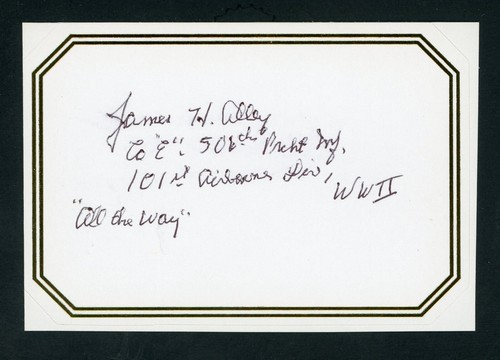 James H. Alley
Co "E". 506th Prcht Inf.
101st Airborne Div,
WWII
"All the Way"